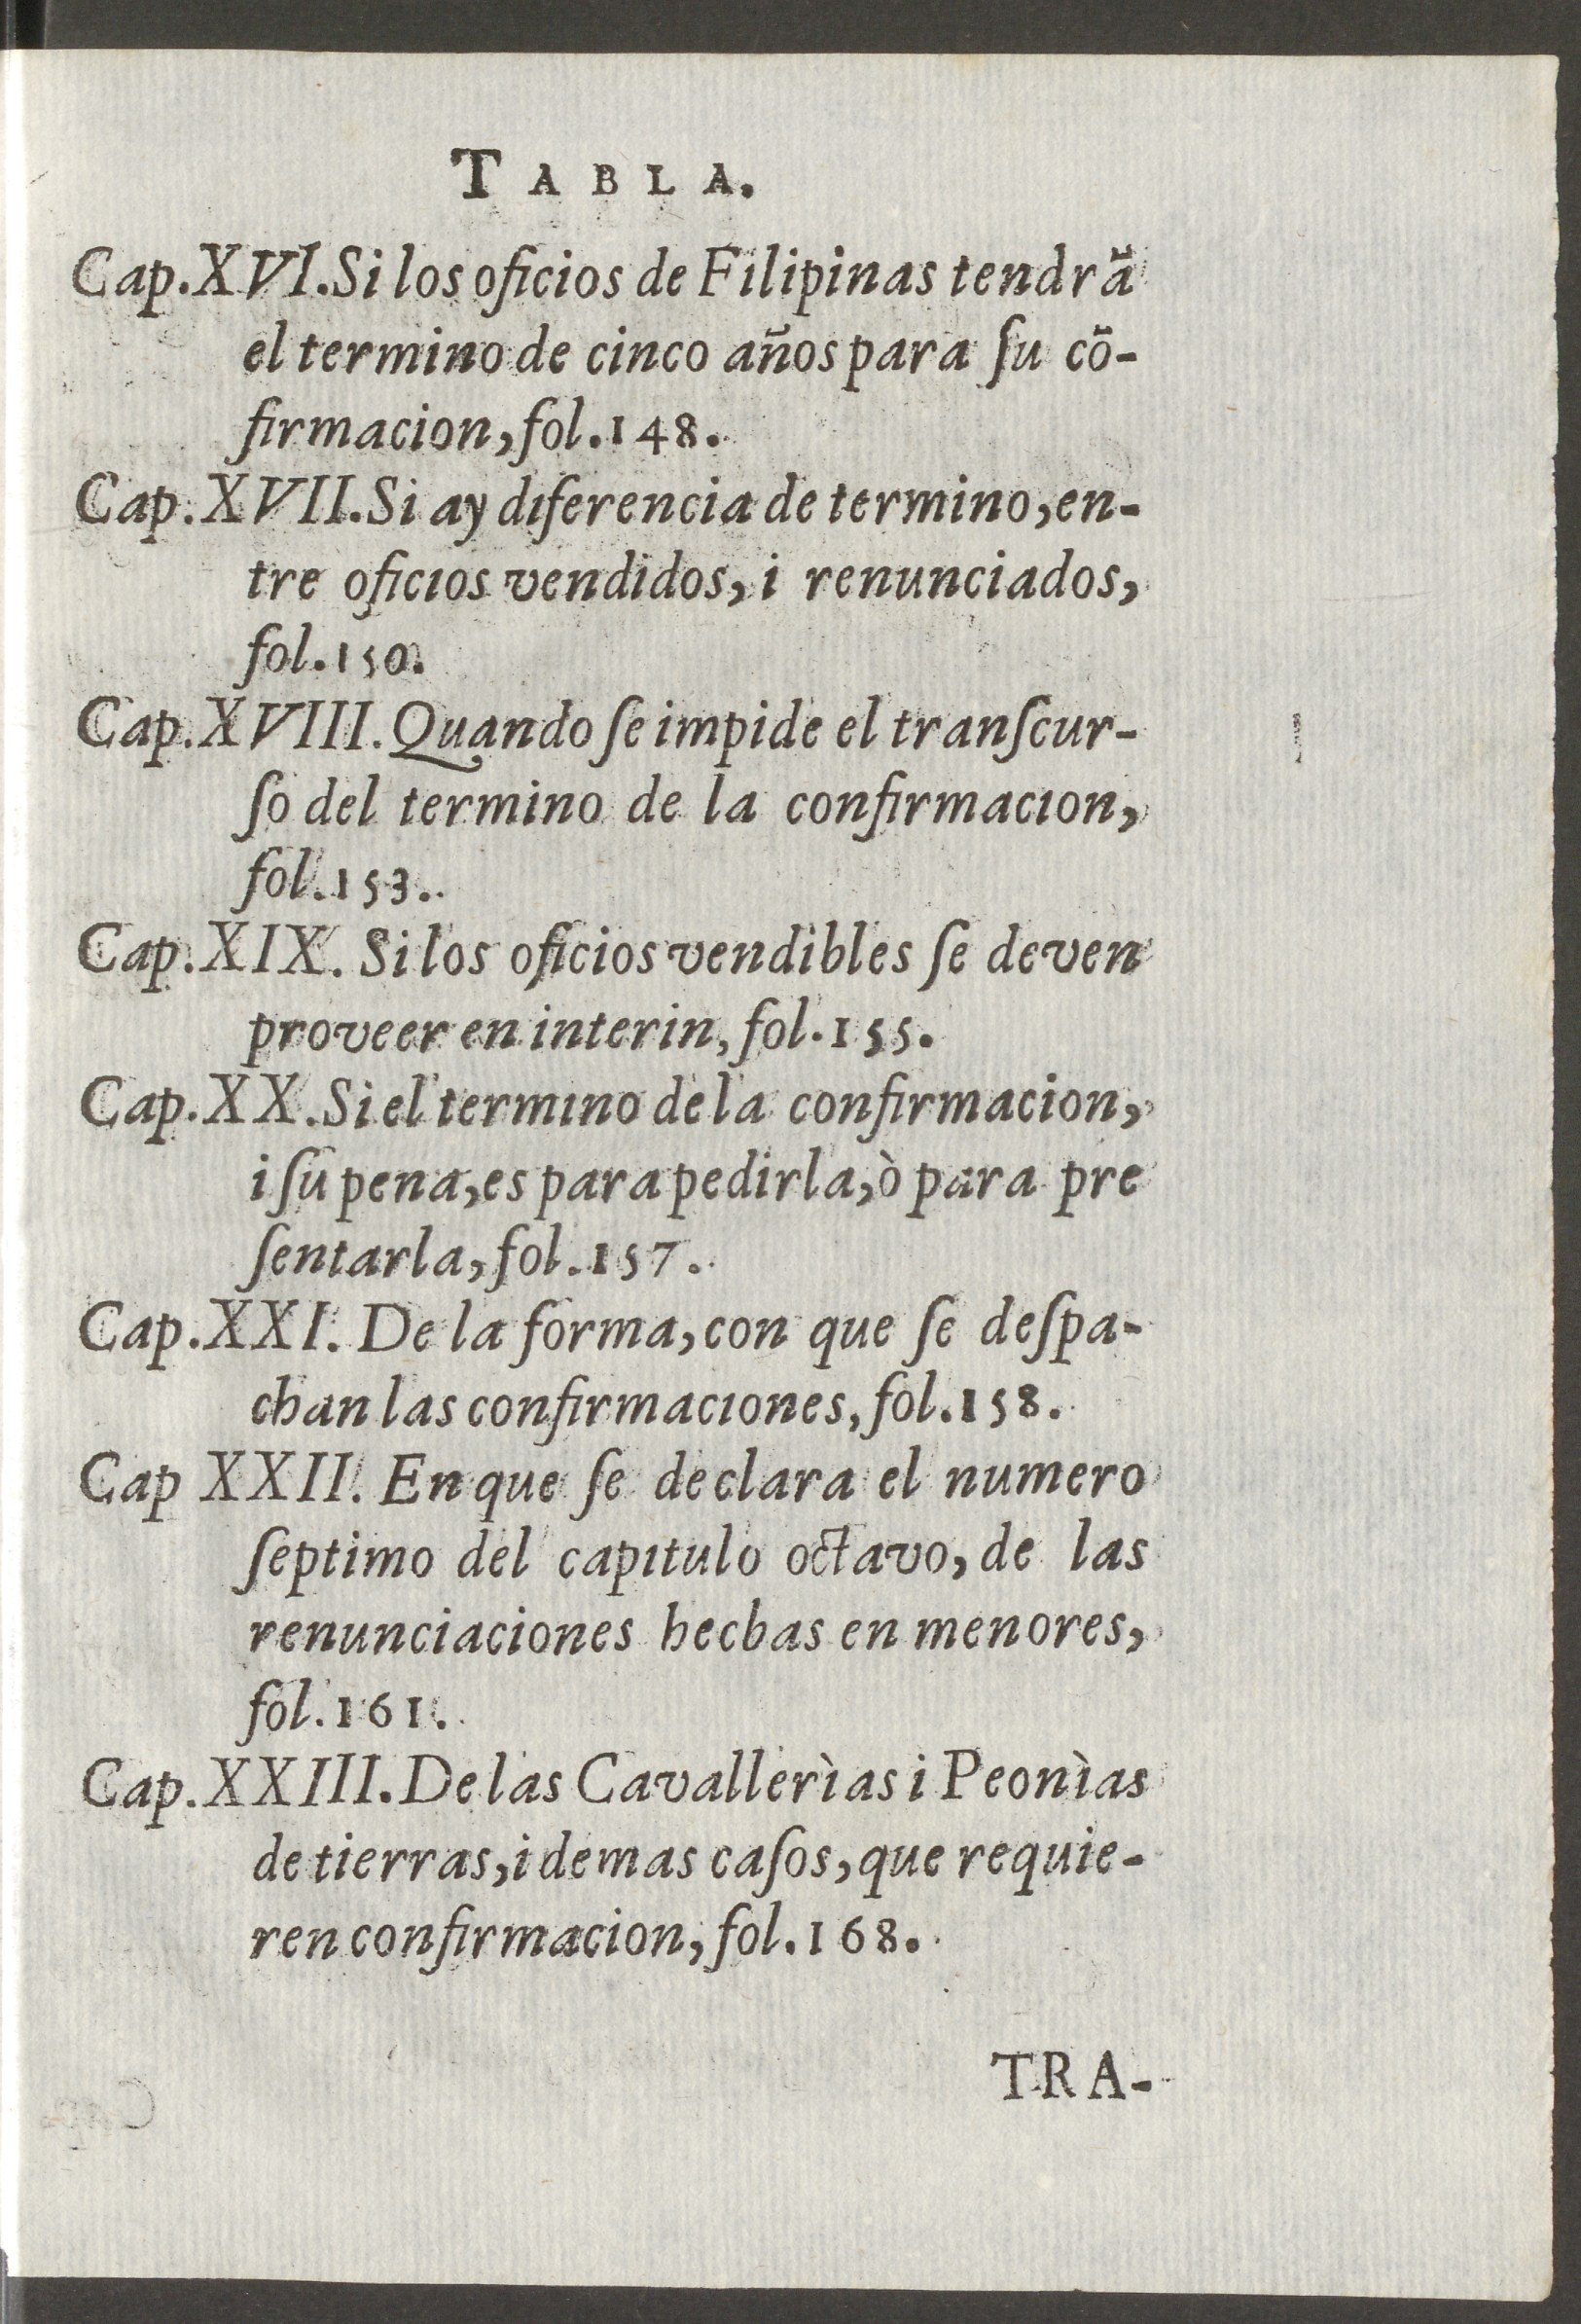 TABLA.
Cap.XVI.Si los oficios de Filipinas tendrã
el termino de cinco años para ſu cõ-
firmacion, fol.148.
Cap.XVII.Si ay diferencia de termino, en-
tre oficios vendidos, i renunciados,
fol.150.
Cap.XVIII.Quando ſe impide el tranſcur-
ſo del termino de la confirmacion,
fol.153.
Cap.XIX. Si los oficios vendibles ſe deven
proveer en interin, fol.155.
Cap.XX.Si el termino de la confirmacion,
i ſu pena, es para pedirla, ò para pre
ſentarla, fol.157.
Cap.XXI. De la forma, con que ſe deſpa-
chan las confirmaciones, fol.158.
Cap XXII. En que ſe declara el numero
ſeptimo del capitulo octavo, de las
renunciaciones hechas en menores,
fol.161.
Cap.XXIII.De las Cavallerìas i Peonìas
de tierras, i demas caſos, que requie-
ren confirmacion, fol.168.
TRA-